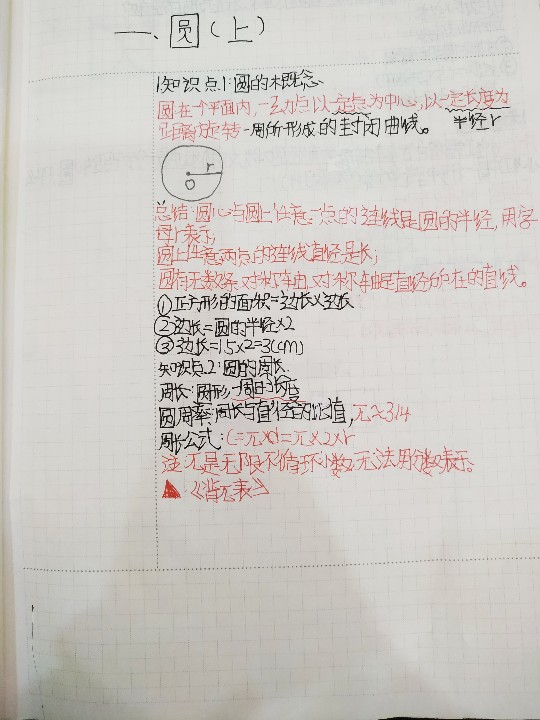 一、圆(上)
1.知识点1:圆的木既念
圆在一个平面内,一动点以一定点为中心,以一定长度为
距离旋转一周所形成的封闭曲线。 半径r
r
O
总结:圆心与圆上任意一点的连线是圆的半径,用字
母r表示;
圆上任意两点的连线直径是长;
圆有无数条对称轴,对称轴是直径所在的直线。
①正方形的面积=边长×边长
②边长=圆的半径×2
③边长=1.5×2=3(cm)
知识点2:圆的周长
周长:圆形一周的长度
圆周率:周长与直径的比值,元≈3.14
周长公式:C=元×d=元×2×r
注:元是无限不循环小数,无法用分数表示。
▲《背元表》